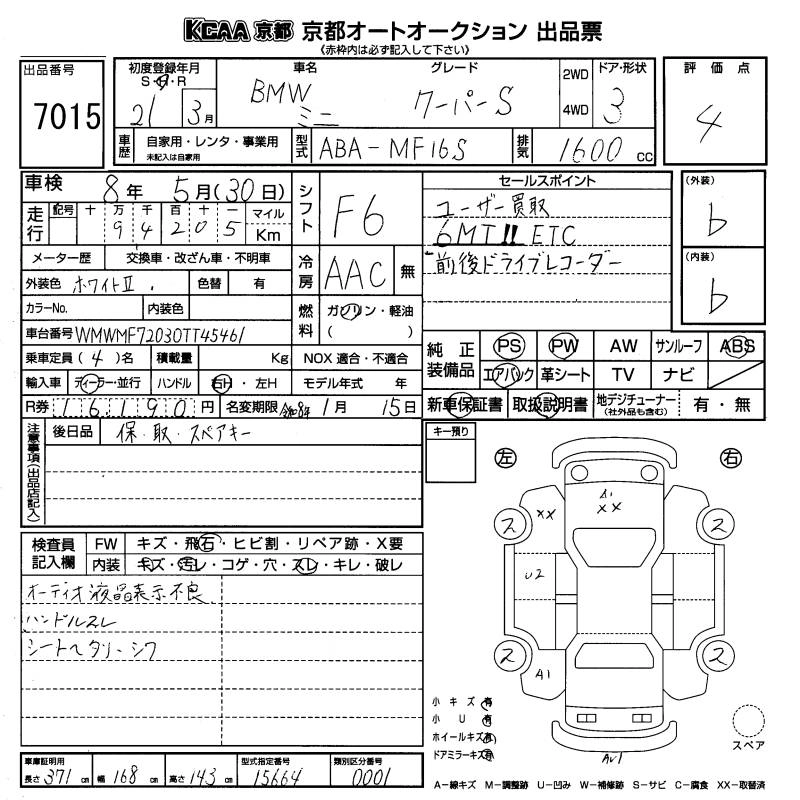 KCAA 京都 京都オートオークション 出品票
《赤枠内は必ず記入して下さい》
出品番号
7015
初度登録年月
S・H・R
21 3月
車名
BMW
ミニ
グレード
クーパーS
2WD
4WD
ドア・形状
3
評価点
4
車歴
自家用・レンタ・事業用
未記入は自家用
型式
ABA-MF16S
排気
1600 cc
車検
8年 5月(30日)
走行
記号 十 万 千 百 十 一 マイル
9 4 2 0 5 Km
メーター歴 交換車・改ざん車・不明車
外装色 ホワイトII 色替 有
カラーNo. 内装色
車台番号 WMWMF72030TT45461
乗車定員(4)名 積載量 Kg
輸入車 ディーラー・並行 ハンドル 右H・左H
R券 16190円 名変期限 令和8年 1月 15日
シフト
F6
冷房
AAC 無
燃料
ガソリン・軽油
( )
NOX 適合・不適合
モデル年式 年
セールスポイント
ユーザー買取
6MT!! ETC
前後ドライブレコーダー
(外装)
b
(内装)
b
純正装備品
PS PW AW サンルーフ ABS
エアバック 革シート TV ナビ
新車保証書 取扱説明書 地デジチューナー(社外品も含む) 有・無
注意事項(出品店記入)
後日品 保・取・スペアキー
キー預り
検査員記入欄
FW キズ・飛石・ヒビ割・リペア跡・X要
内装 キズ・汚レ・コゲ・穴・スレ・キレ・破レ
オーディオ液晶表示不良
ハンドルスレ
シートヘタリ・シワ
左 右
A1
XX XX
ス ス
U2
ス ス
A1
小キズ 有
小U 有
ホイールキズ 有
ドアミラーキズ 有
スペア
車庫証明用
長さ371cm 幅168cm 高さ143cm
型式指定番号
15664
類別区分番号
0001
A-線キズ M-調整跡 U-凹み W-補修跡 S-サビ C-腐食 XX-取替済